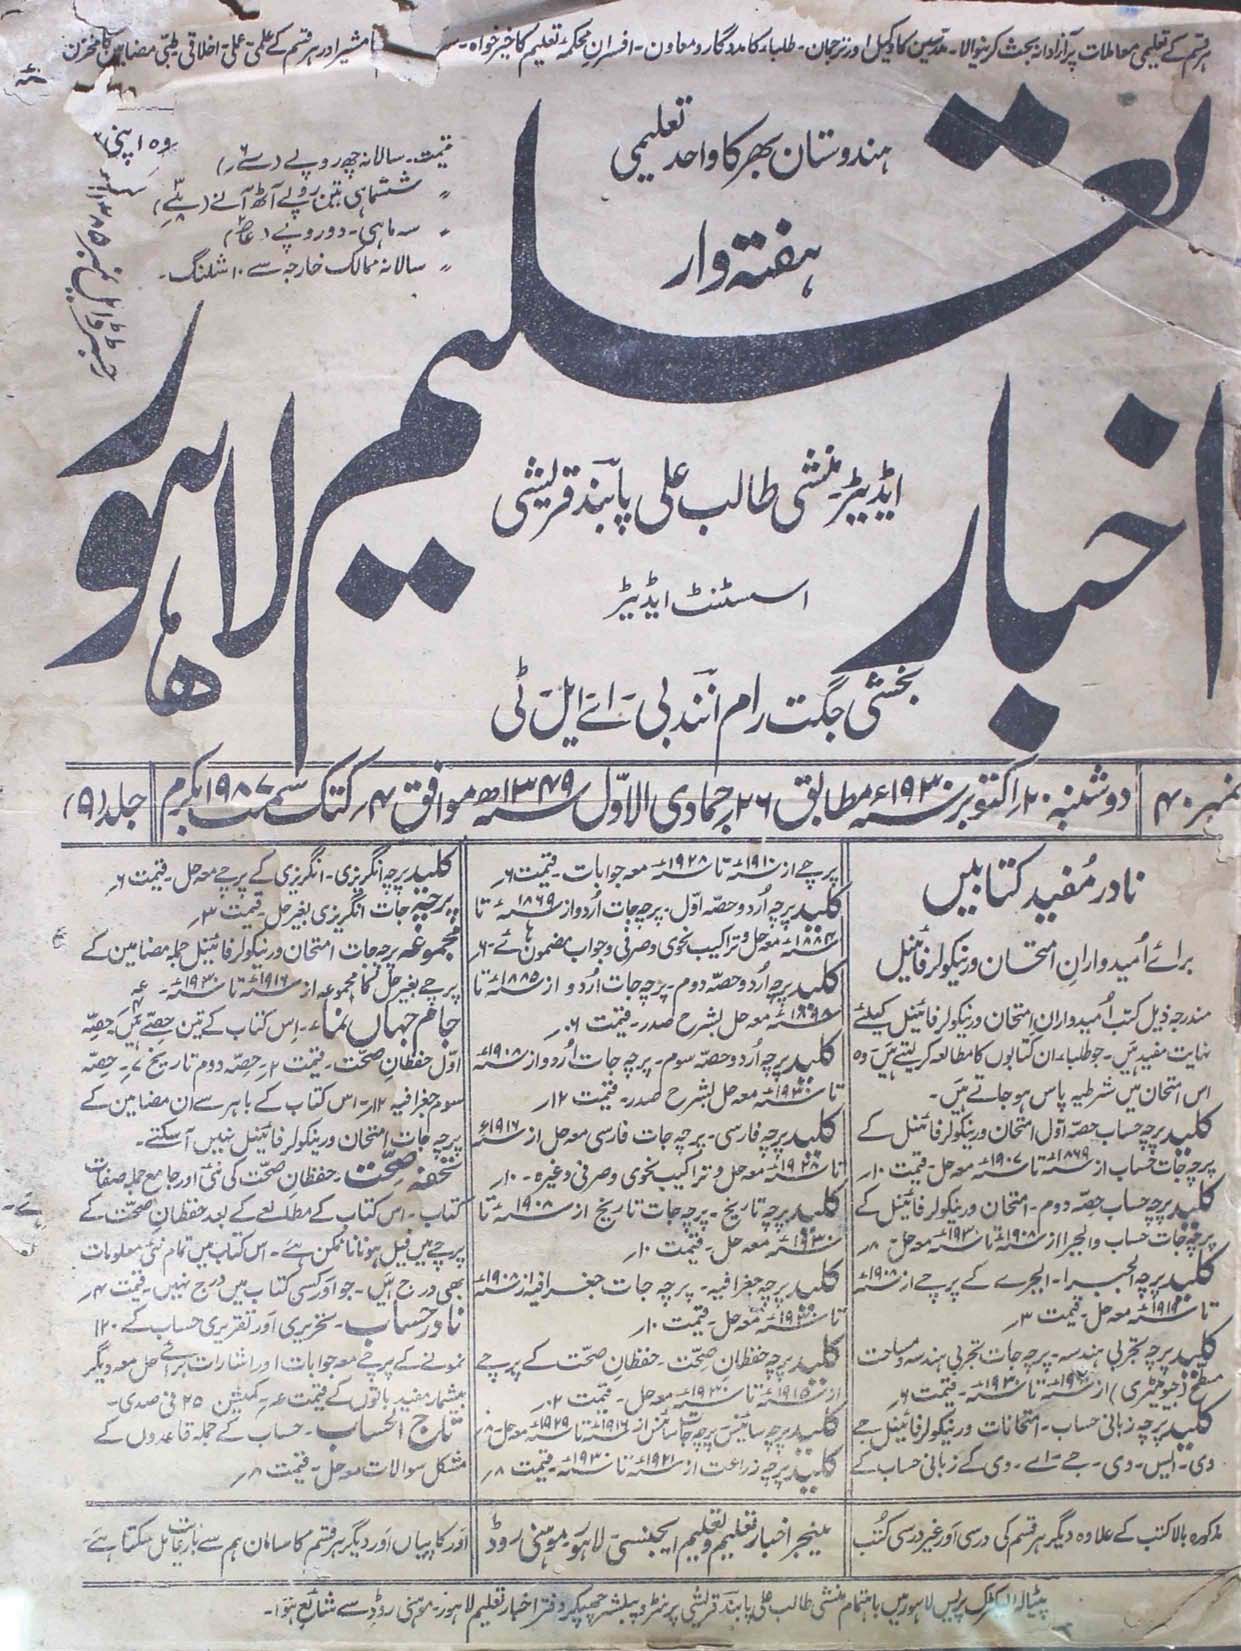 ہر قسم کے تعلیمی معاملات پر آزادانہ بحث کرنیوالا۔ مدرسین کا وکیل اور ترجمان۔ طلباء کا مددگار و معاون۔ افسرانِ محکمۂ تعلیم کا خیر خواہ۔ مشیر اور ہر قسم کے علمی۔ عملی۔ اخلاقی۔ طبّی مضامین کا مخزن
ہندوستان بھر کا واحد تعلیمی
ہفتہ وار
قیمت۔ سالانہ چھ روپے
〃 ششماہی تین روپے آٹھ آنے
〃 سہ ماہی۔ دو روپے
〃 سالانہ ممالک خارجہ سے ۱۰ شلنگ۔
رجسٹرڈ ایل نمبر
اخبار تعلیم لاہور
ایڈیٹر۔ منشی طالب علی پابند قریشی
اسسٹنٹ ایڈیٹر
بخشی جگت رام آنند بی۔ اے ایل۔ ٹی
نمبر ۴۰ دوشنبہ ۲۰ اکتوبر ۱۹۳۰ء مطابق ۲۶ جمادی الاوّل ۱۳۴۹ھ موافق ۴ کتک سمت ۱۹۸۷ بکرم جلد (۹)
نادر مُفید کتابیں
برائے اُمیدوارانِ امتحان ورنیکولر فائینل
مندرجہ ذیل کتب اُمیدواران امتحان ورنیکولر فائینل کیلئے
نہایت مفید ہیں۔ جو طلباء ان کتابوں کا مطالعہ کر لیتے ہیں وہ
اس امتحان میں شرطیہ پاس ہو جاتے ہیں۔
کلید پرچہ حساب حصّہ اوّل امتحان ورنیکولر فائینل کے
پرچہ جات حساب از ۱۸۶۹ء تا ۱۹۰۷ء معہ حل۔ قیمت ۱۰؍
کلید پرچہ حساب حصّہ دوم۔ امتحان ورنیکولر فائینل کے
پرچہ جات حساب والجبرا از ۱۹۰۸ء تا ۱۹۳۰ء معہ حل۔ ۸؍
کلید پرچہ الجبرا۔ الجبرے کے پرچے از ۱۹۰۸ء
تا ۱۹۱۹ء معہ حل۔ قیمت ۳؍
کلید پرچہ تجربی ہندسہ۔ پرچہ جات تجربی ہندسہ و مساحت
سطح (جیومیٹری) از ۱۹۲۰ء تا ۱۹۳۰ء۔ قیمت ۶؍
کلید پرچہ زبانی حساب۔ امتحانات ورنیکولر فائینل جے
وی۔ ایس۔ وی۔ جے۔ اے۔ وی کے زبانی حساب کے
پرچے از ۱۹۱۰ء تا ۱۹۲۸ء معہ جوابات۔ قیمت ۶؍
کلید پرچہ اُردو حصّہ اوّل۔ پرچہ جات اُردو از ۱۸۶۹ء تا
۱۸۸۴ء معہ حل و تراکیب نحوی و صرفی و جواب مضمون ہائے۔ ۶؍
کلید پرچہ اُردو حصّہ دوم۔ پرچہ جات اُردو از ۱۸۸۵ء تا
معہ حل بشرح صدر۔ قیمت ۶؍
کلید پرچہ اُردو حصّہ سوم۔ پرچہ جات اُردو از ۱۹۰۸ء
تا ۱۹۳۰ء معہ حل بشرح صدر۔ قیمت ۱۲؍
کلید پرچہ فارسی۔ پرچہ جات فارسی معہ حل از ۱۹۱۶ء
تا ۱۹۲۸ء معہ حل و تراکیب نحوی و صرفی وغیرہ۔ ۱۰؍
کلید پرچہ تاریخ۔ پرچہ جات تاریخ از ۱۹۰۸ء تا
۱۹۳۰ء معہ حل۔ قیمت ۱۰؍
کلید پرچہ جغرافیہ۔ پرچہ جات جغرافیہ از ۱۹۰۸ء
تا ۱۹۳۰ء معہ حل۔ قیمت ۱۰؍
کلید پرچہ حفظانِ صحّت۔ حفظانِ صحّت کے پرچے
از ۱۹۱۵ء تا ۱۹۳۰ء معہ حل۔ قیمت ۲؍
کلید پرچہ سائینس پرچہ جات سائنس از ۱۹۱۶ء تا ۱۹۲۹ء معہ حل۔ ۸؍
کلید پرچہ زراعت از ۱۹۲۱ء تا ۱۹۳۰ء۔ قیمت ۸؍
کلید پرچہ انگریزی۔ انگریزی کے پرچے معہ حل۔ قیمت ۶؍
پرچہ جات انگریزی بغیر حل۔ قیمت ۳؍
مجموعہ پرچہ جات امتحان ورنیکولر فائینل جملہ مضامین کے
پرچے بغیر حل کا مجموعہ از ۱۹۱۶ء تا ۱۹۳۰ء۔
جام جہاں نما۔ اِس کتاب کے تین حصّے ہیں۔ حِصّہ
اوّل حفظانِ صحّت۔ قیمت ۲؍۔ حِصّہ دوم تاریخ ۷؍۔ حِصّہ
سوم جغرافیہ ۱۲؍۔ اس کتاب کے باہر سے ان مضامین کے
پرچہ جات امتحان ورنیکولر فائینل نہیں آ سکتے۔
تحفۂ صحّت۔ حفظانِ صحّت کی نئی اور جامع جملہ صفات
کتاب۔ اس کتاب کے مطالعے کے بعد حفظانِ صحّت کے
پرچے میں فیل ہونا ناممکن ہے۔ اس کتاب میں تمام نئی معلومات
بھی درج ہیں۔ جو اَور کسی کتاب میں درج نہیں۔ قیمت ۴؍
نادر حساب۔ تحریری اَور تقریری حساب کے ۱۲۰
نمونے کے پرچے معہ جوابات اور اشارات برائے حل معہ دیگر
بیشمار مفید باتوں کے قیمت ۔ کمیشن ۲۵ فی صدی۔
تاج الحساب۔ حساب کے جملہ قاعدوں کے
مشکل سوالات معہ حل۔ قیمت ۸؍
مذکورہ بالا کتب کے علاوہ دیگر ہر قسم کی درسی اَور غیر درسی کُتب
اَور کاپیاں اَور دیگر ہر قسم کا سامان ہم سے بازعایت مل سکتا ہے۔
مینجر اخبار تعلیم و تعلیم ایجنسی۔ لاہور۔ موہنی روڈ
پٹیالہ الیکٹرک پریس لاہور میں باہتمام منشی طالب علی پابند قریشی پرنٹر و پبلشر چھپکر دفتر اخبار تعلیم لاہور۔ موہنی روڈ سے شائع ہوا۔